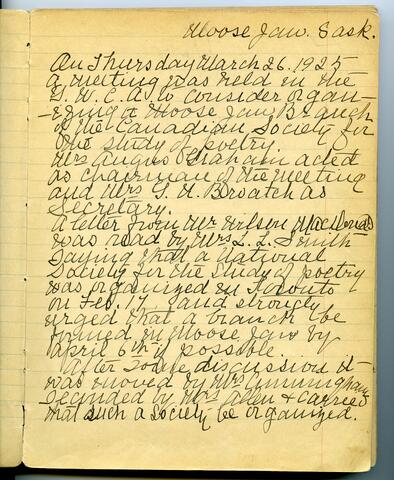 Moose Jaw. Sask.
On Thursday March 26. 1925
a meeting was held in the
Y. W. C. A. to consider organ-
-izing a Moose Jaw Branch
of the Canadian Society for
the study of poetry.
Mrs Angus Graham acted
as chairman of the meeting
and Mrs G. H. Broatch as
Secretary.
A letter from Mr Wilson MacDonald
was read by Mrs L. L. Smith
saying that a National
Society for the Study of poetry
was organized in Toronto
on Feb. 17, and strongly
urged that a branch be
formed in Moose Jaw by
April 6th if possible
After some discussion it
was moved by Mrs Cunningham
seconded by Mrs Allen & carried
that such a Society be organized.